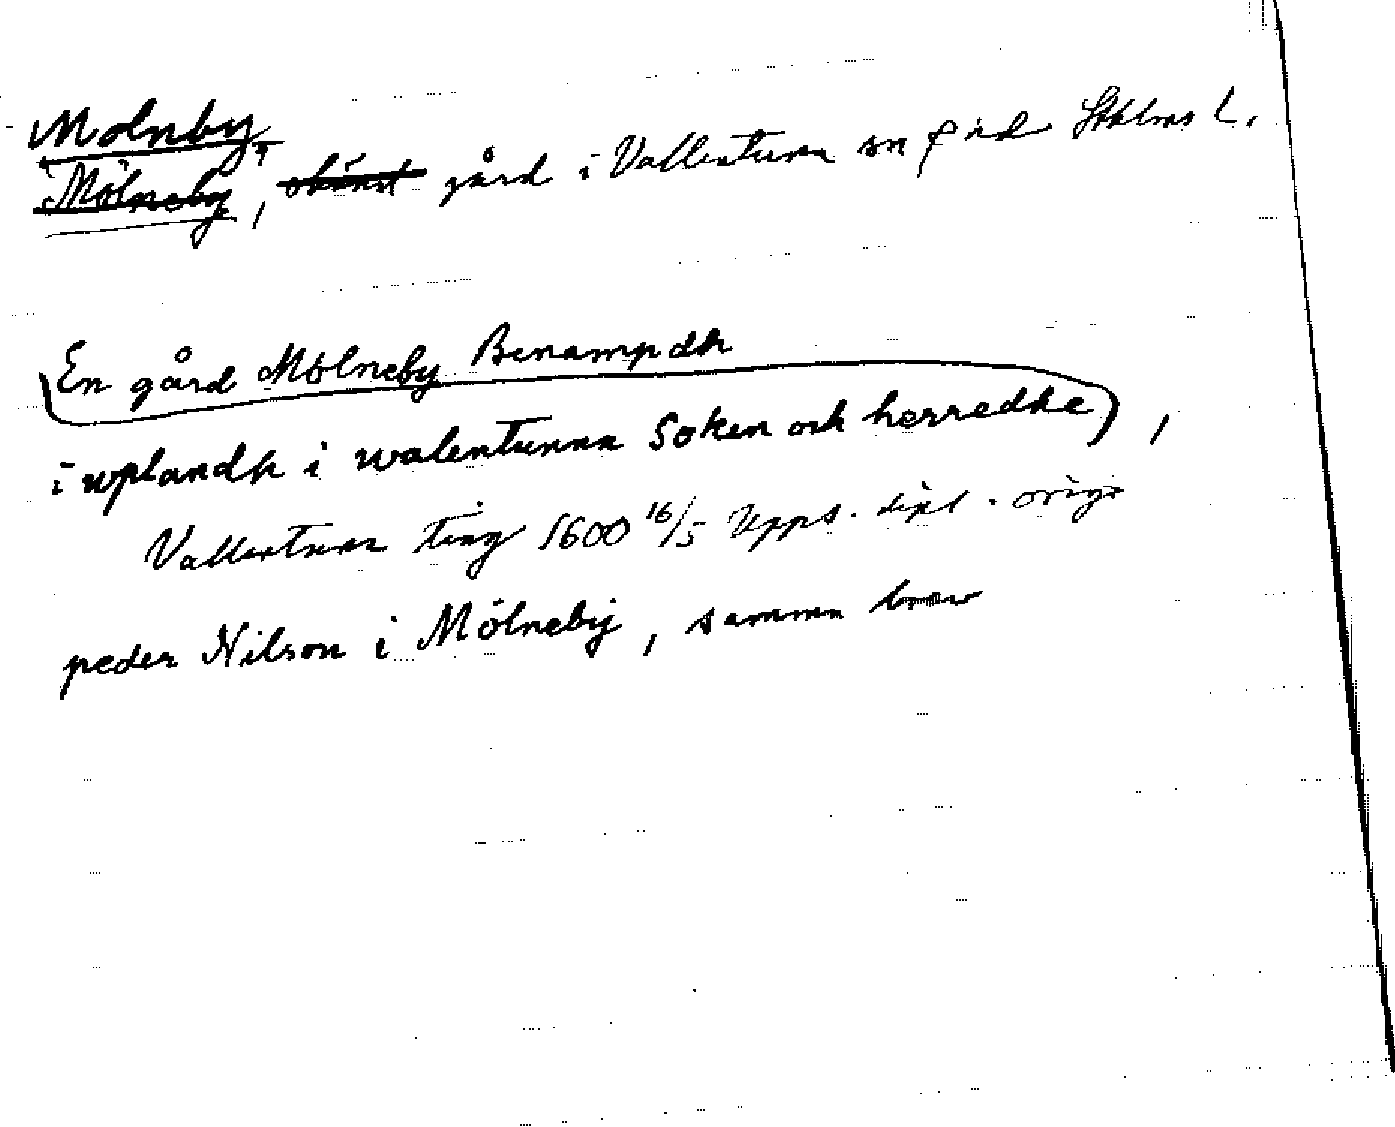 Molnby,
Mölneby, okänd gård i Vallentuna sn o hd Sthlms l.
En gård Mölneby Benampdh
i wplandh i walentunna Soken och herredhe),
Vallentuna ting 1600 16/5 Upps. dipl. orig.
peder Nilson i Mölneby, samma brev